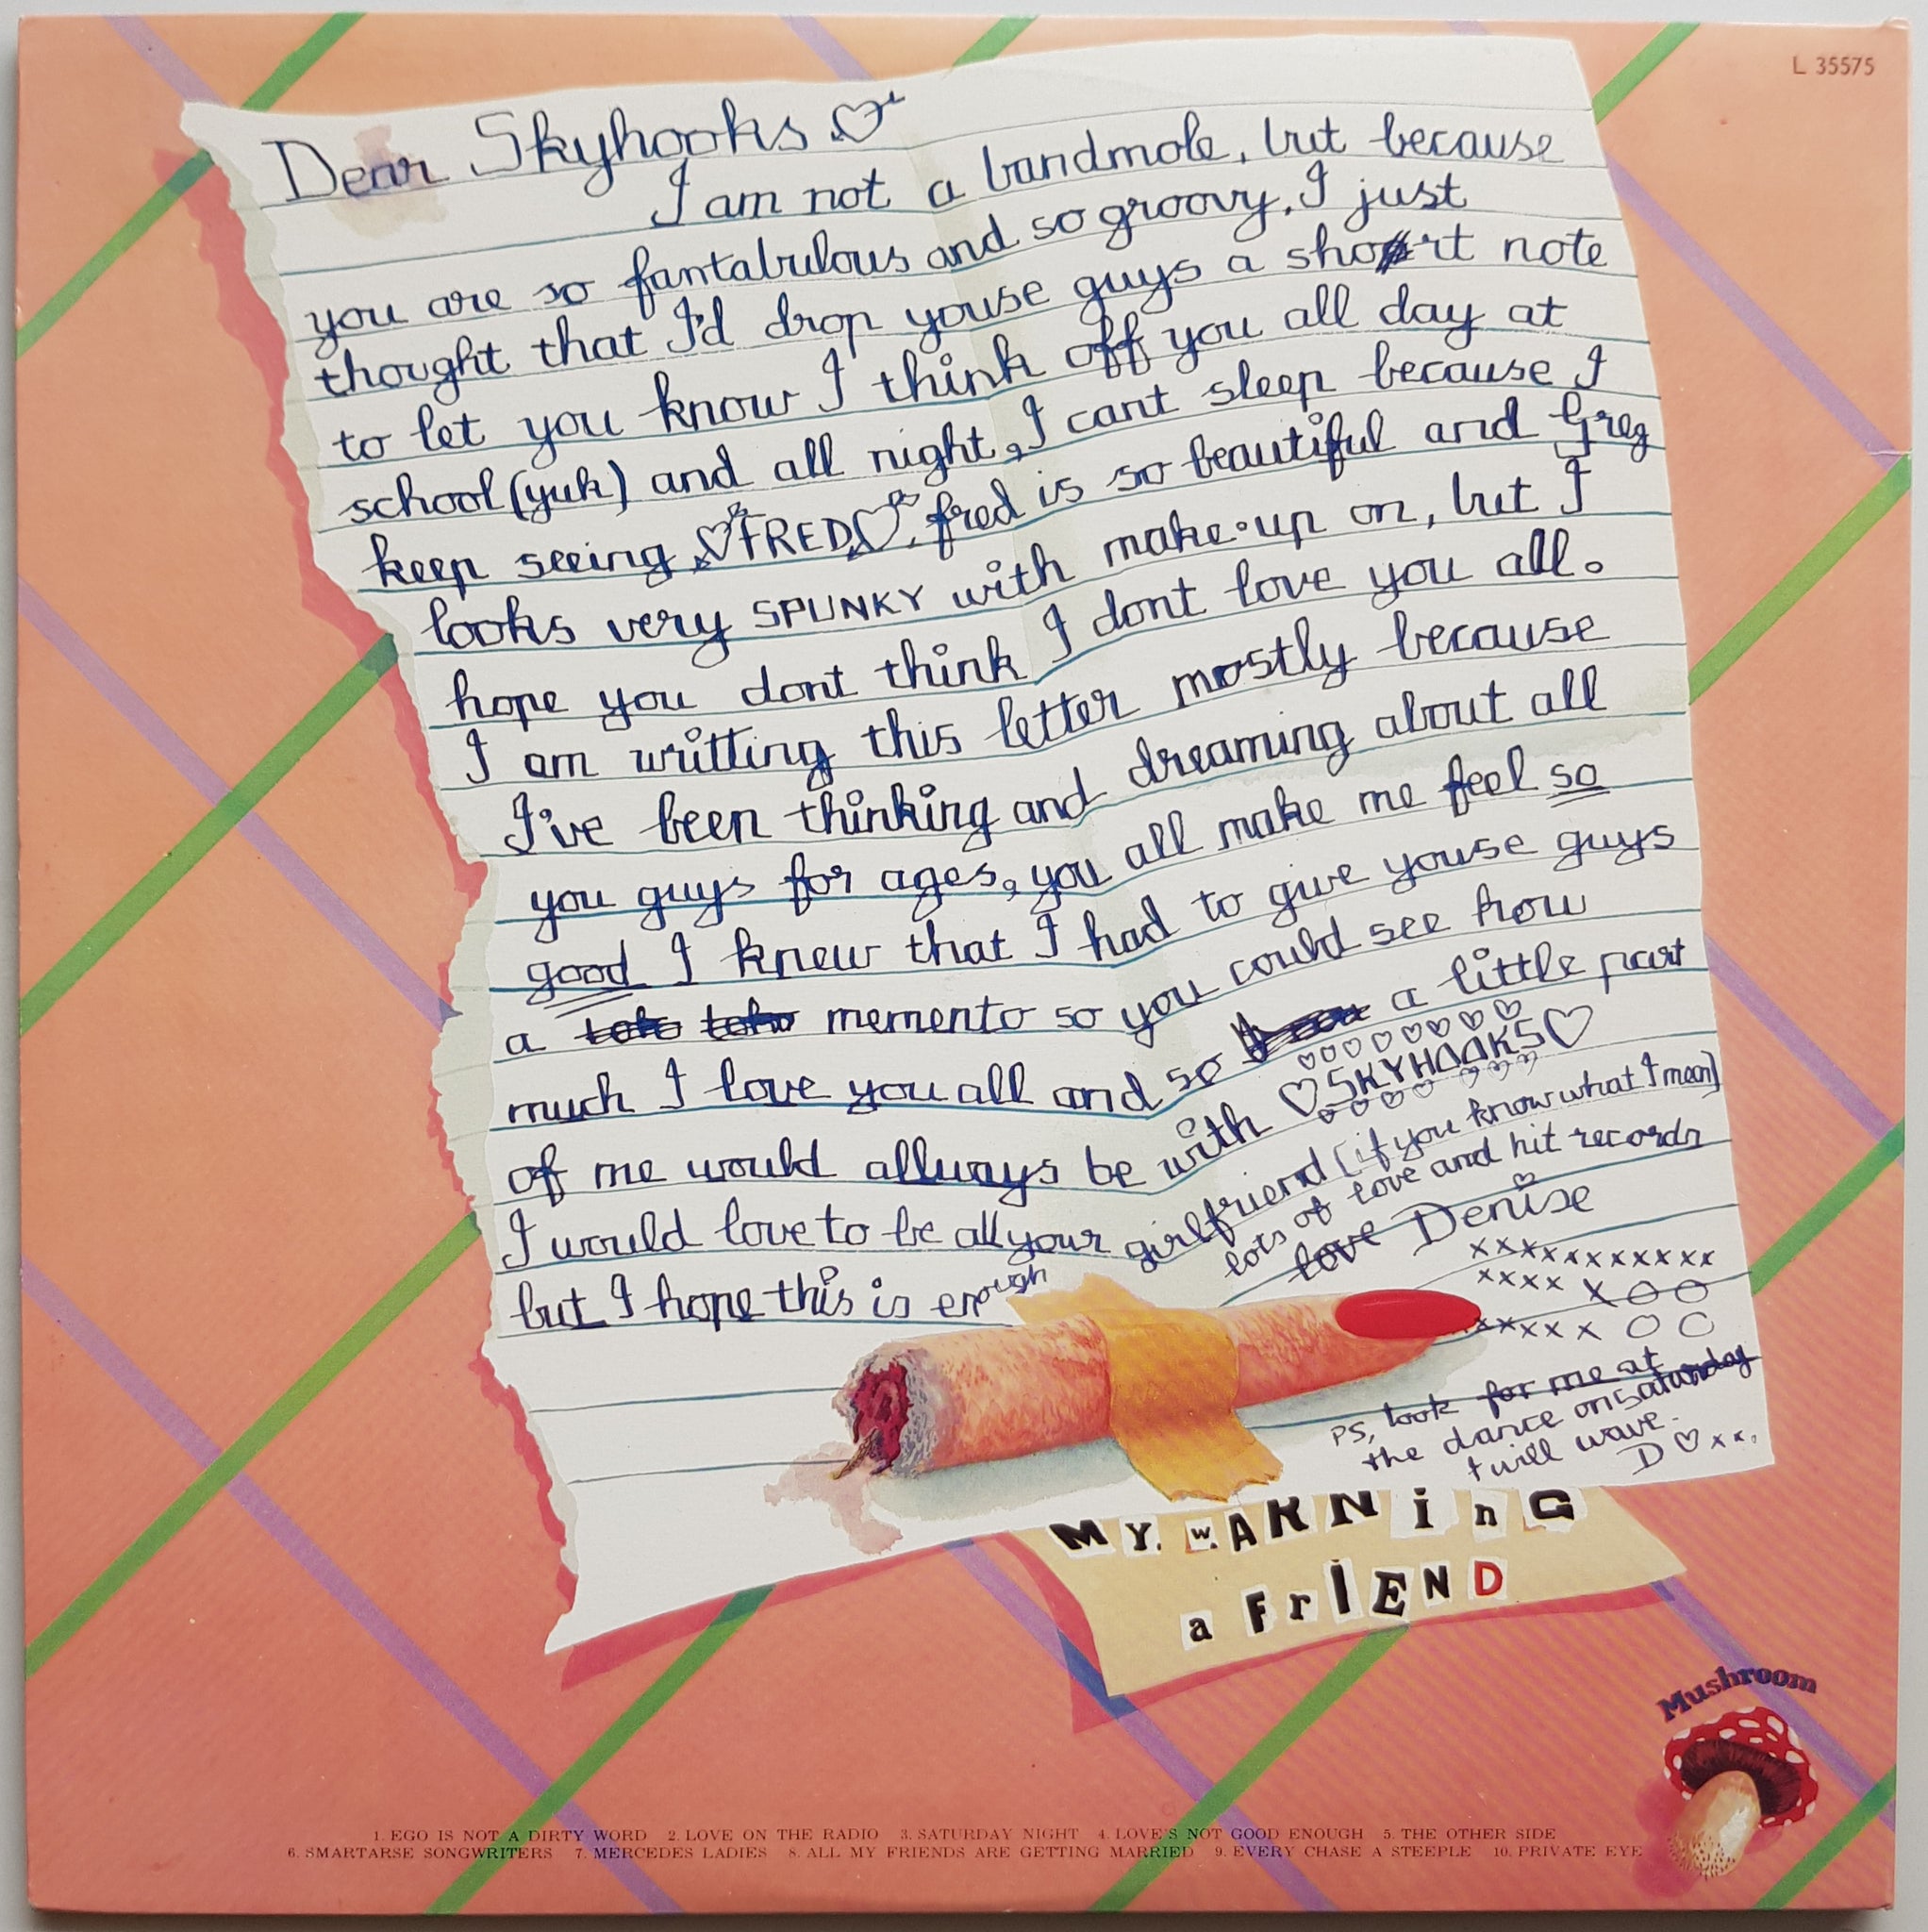 L 35575
Dear Skyhooks
I am not a bandmole, but because
you are so fantabulous and so groovy, I just
thought that I'd drop youse guys a short note
to let you know I think off you all day at
school (yuk) and all night, I cant sleep because I
keep seeing FRED. fred is so beautiful and Greg
looks very SPUNKY with make-up on, but I
hope you dont think I dont love you all.
I am writting this letter mostly because
I've been thinking and dreaming about all
you guys for ages, you all make me feel so
good I knew that I had to give youse guys
a memento so you could see how
much I love you all and so a little part
of me would allways be with SKYHOOKS
I would love to be all your girlfriend (if you know what I mean)
but I hope this is enough
lots of love and hit records
love Denise
xxxxxxxxxxx
xxxx X O O
xxxxx O O
PS, look for me at
the dance on saturday
I will wave.
D xx.
MY. w.ARNinG
a FrIEND
Mushroom
1. EGO IS NOT A DIRTY WORD 2. LOVE ON THE RADIO 3. SATURDAY NIGHT 4. LOVE'S NOT GOOD ENOUGH 5. THE OTHER SIDE
6. SMARTARSE SONGWRITERS 7. MERCEDES LADIES 8. ALL MY FRIENDS ARE GETTING MARRIED 9. EVERY CHASE A STEEPLE 10. PRIVATE EYE